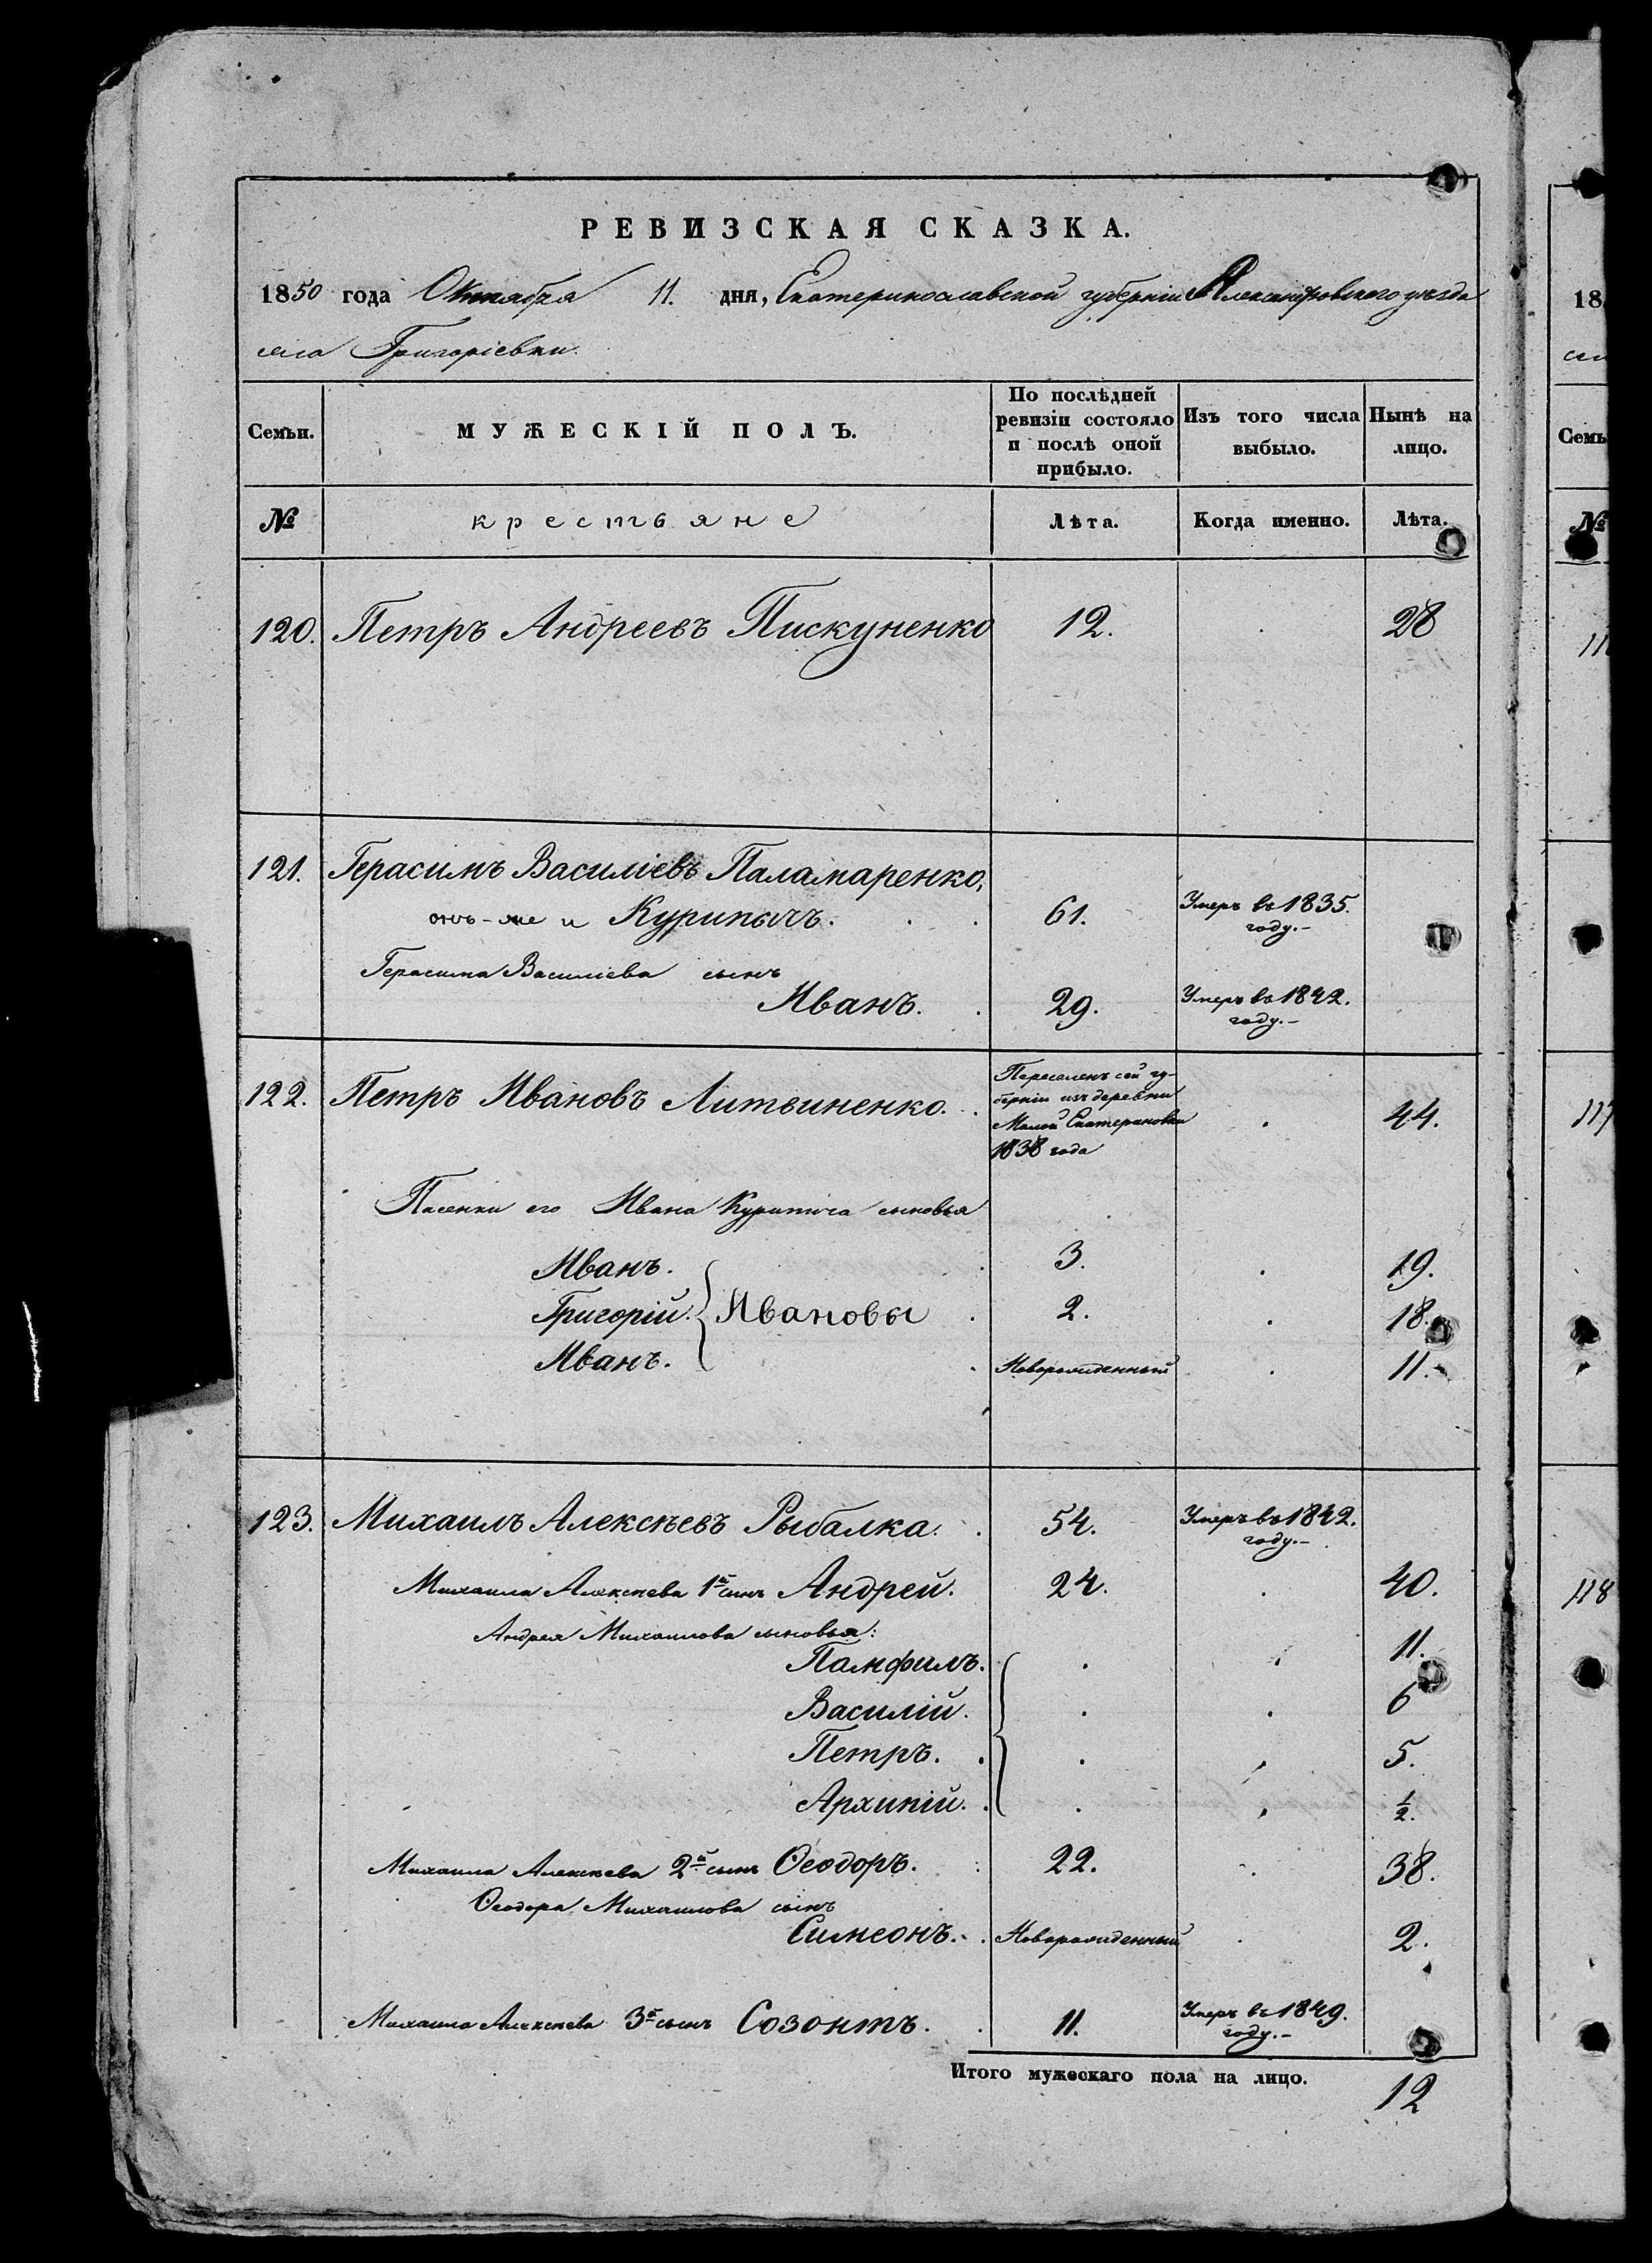 РЕВИЗСКАЯ СКАЗКА.
1850 года Октября 11. дня, Екатеринославской губерніи Александровского уѣзда
села Григоріевки.
Семьи. МУЖЕСКІЙ ПОЛЪ. По послѣдней ревизіи состояло и послѣ оной прибыло. Изъ того числа выбыло. Нынѣ на лицо.
№ крестьяне Лѣта. Когда именно. Лѣта.
120. Петръ Андреевъ Пискуненко 12. 28
121. Герасимъ Василіевъ Паламаренко,
онъ-же и Курипычъ. 61. Умеръ въ 1835. году.-
Герасима Василіева сынъ
Иванъ. 29. Умеръ въ 1842. году.-
122. Петръ Ивановъ Литвиненко. Переселенъ сей гу-
берніи изъ деревни
Малой Екатериновки
1838 года 44.
Пасенки его Ивана Курипича сыновья
Иванъ. 3. 19.
Григорій. Ивановы 2. 18.
Иванъ. Новорожденный 11.
123. Михаилъ Алексѣевъ Рыбалка. 54. Умеръ въ 1842. году.-
Михаила Алексѣева 1й сынъ Андрей. 24. 40.
Андрея Михаилова сыновья:
Памфилъ. 11.
Василій. 6
Петръ. 5.
Архипій. ½.
Михаила Алексѣева 2й сынъ Ѳеодоръ. 22. 38.
Ѳеодора Михаилова сынъ
Симеонъ. Новорожденный 2.
Михаила Алексѣева 3й сынъ Созонтъ. 11. Умеръ въ 1849. году.-
Итого мужескаго пола на лицо. 12
18
Семь
№
117
118